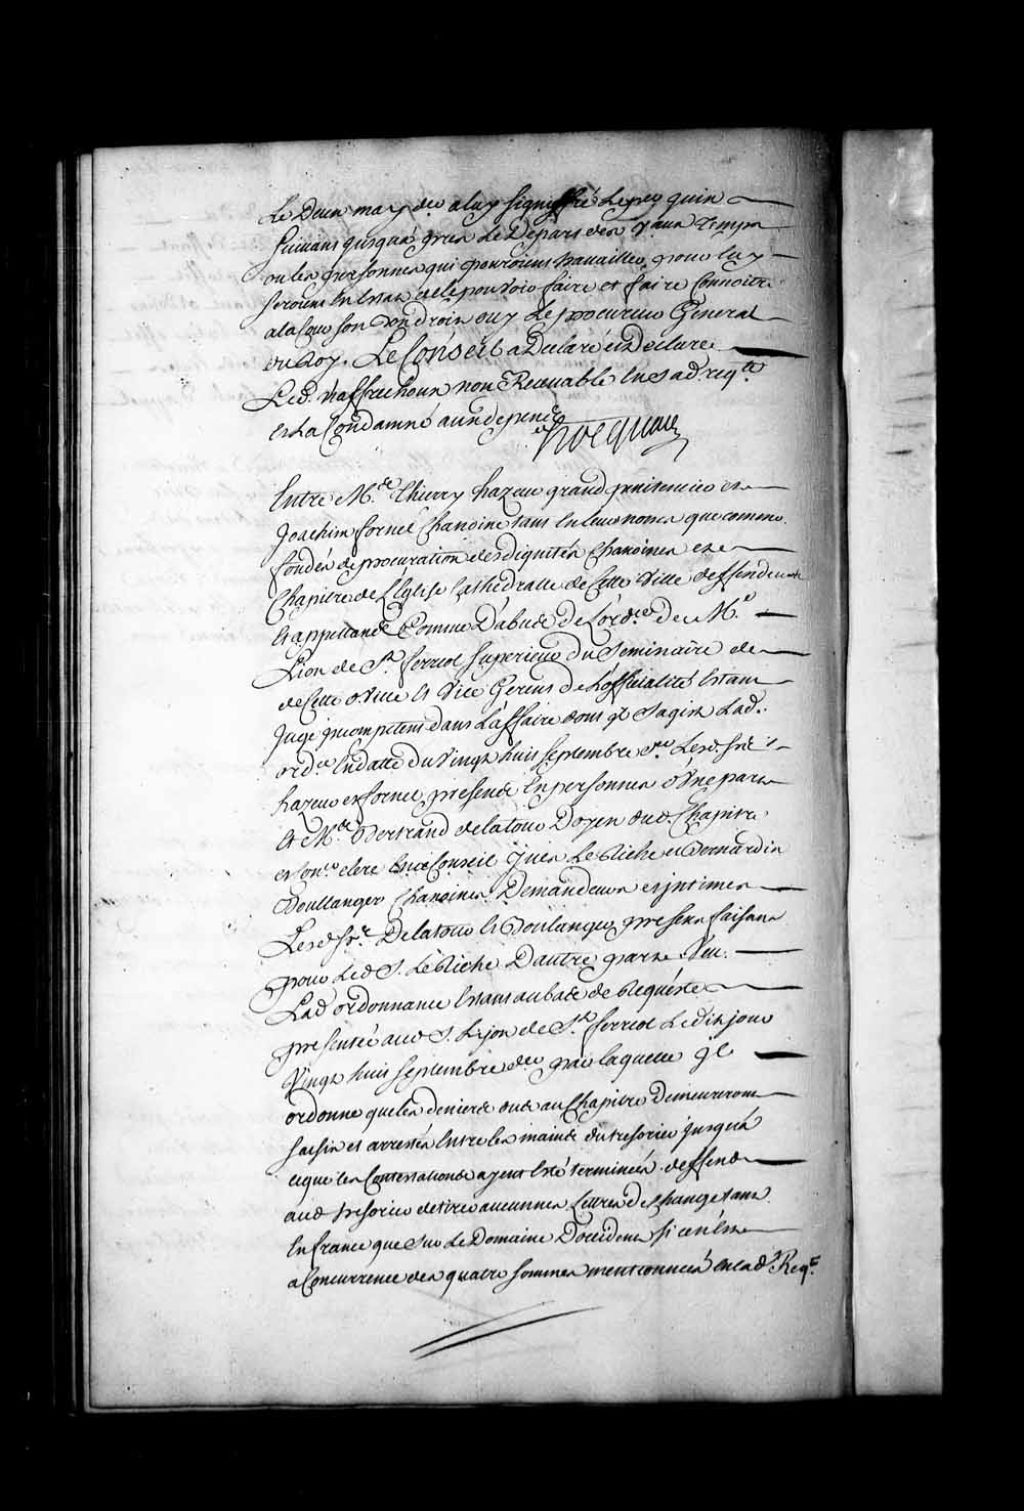 Le Deux may d.er a luy signiffié Le xxv juin
suivans jusqua pres Le Depars des Vaux Temps
ou les personnes qui pouroiens travailler pour luy
seroiens En Estat de le pouvoir faire et faire Connoitre
a la Cour son bon droit ouy Le procureur General
du Roy. Le Conseil a Declaré et Declare
Led. non Recevable En sad. req.te
et La Condamné aux depens
hocquart
Entre M.e Thierry hazeur grand penitencier et
Joachim fornel Chanoine tant En leurs noms que comme
fondés de procuration des dignités Chanoines et
Chapitre de L'Eglise Cathedralle de Cette Ville deffendeurs
Et appellans Comme D'abus de L'ord.ce de M.e
Lion de S.t ferreol Superieur Du Seminaire de
de Cette Ville Et Vice Gerens de L'officialité Estant
Juge jncompetent dans L'affaire dont jl s'agist Lad.
ord.ce En datte du Vingt huit septembre d.er Lesd. Srs
hazeur et fornel presens En personnes D'Vne part
Et M.e Bertrand de la tour Doyen dud. Chapitre
et con.er clerc En ce Conseil Yves Le Riche et Bernardin
Boullanger Chanoines Demandeurs et jntimés
Lesd. Srs. De la tour Et Boulanger presens faisans
pour Led. S. Le Riche D'autre part. Veu
Lad ordonnance Estant au bas de Requeste
presentée aud. S. Lyon de S.t ferreol Ledit jour
Vingt huit septembre d.er par laquelle jl
ordonne que les deniers dus au Chapitre Demeureront
saisis et arrestés Entre les mains du tresorier jusqu'a
ce que les Contestations ayent Esté terminées deffend
aud. tresorier de tirer aucunnes Lettres de change tant
En france que sur Le Domaine D'occident si ce n'est
a Concurrence des quatre sommes mentionnées En lad. Req.te